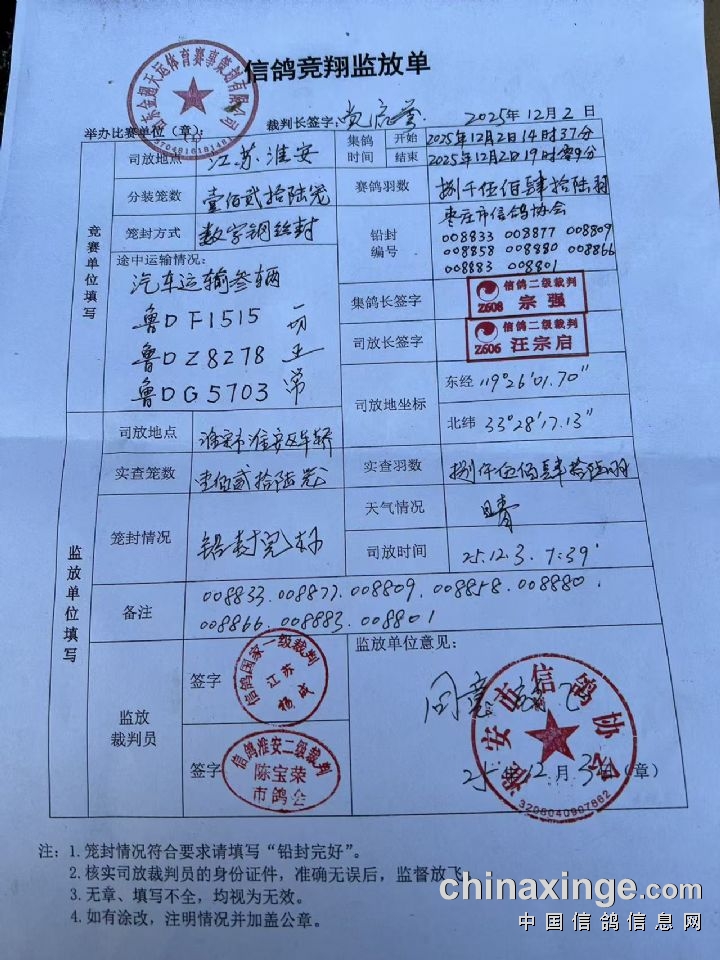 信鸽竞翔监放单
举办比赛单位（章）：
裁判长签字：
2025年12月2日
竞赛单位填写
司放地点 江苏淮安
集鸽时间 开始 2025年12月2日14时37分
结束 2025年12月2日19时零9分
分装笼数 壹佰贰拾陆笼
赛鸽羽数 捌仟伍佰肆拾陆羽
笼封方式 数字钢丝封
铅封编号 枣庄市信鸽协会
008833 008877 008809
008858 008880 008866
008883 008801
途中运输情况：
汽车运输叁辆
鲁DF1515 一切
鲁DZ8278 正
鲁DG5703 常
集鸽长签字 信鸽二级裁判 Z608 宗强
司放长签字 信鸽二级裁判 Z606 汪宗启
司放地坐标 东经 119°26'01.70"
北纬 33°28'17.13"
监放单位填写
司放地点 淮安市淮安区车桥
实查笼数 壹佰贰拾陆笼
实查羽数 捌仟伍佰肆拾陆羽
笼封情况 铅封完好
天气情况 晴
司放时间 25.12.3. 7:39'
备注 008833.008877.008809.008858.008880.
008866.008883.008801
监放裁判员
签字 信鸽国家一级裁判 江苏 杨成
签字 信鸽淮安二级裁判 陈宝荣 市鸽会
监放单位意见：
同意放飞
淮安市信鸽协会
3208040907862
25年12月3日（章）
注：1. 笼封情况符合要求请填写“铅封完好”。
2. 核实司放裁判员的身份证件，准确无误后，监督放飞。
3. 无章、填写不全，均视为无效。
4. 如有涂改，注明情况并加盖公章。
chinaxinge.com
中国信鸽信息网